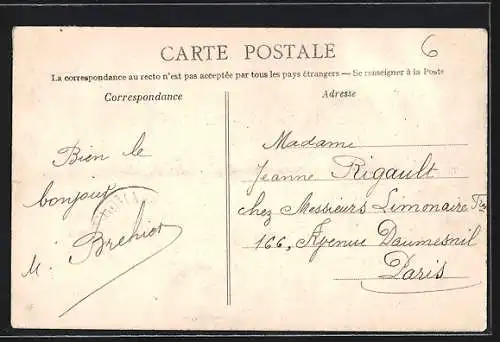 6
CARTE POSTALE
La correspondance au recto n'est pas acceptée par tous les pays étrangers — Se renseigner à la Poste
Correspondance
Adresse
Bien le
bonjour
M. Brehier
Madame
Jeanne Rigault
chez Messieurs Limonaire Frs
166, Avenue Daumesnil
Paris